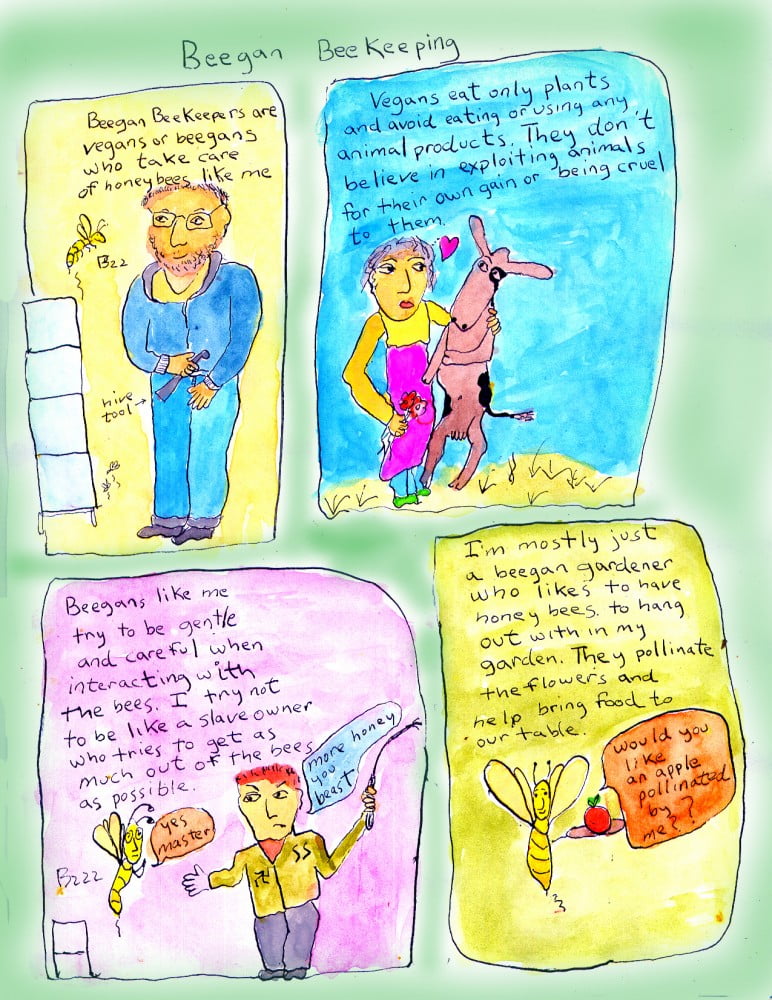 Beegan BeeKeeping
Beegan BeeKeepers are
vegans or beegans
who take care
of honeybees like me
Bzz
hive
tool →
Vegans eat only plants
and avoid eating or using any
animal products. They don't
believe in exploiting animals
for their own gain or being cruel
to them.
Beegans like me
try to be gentle
and careful when
interacting with
the bees. I try not
to be like a slaveowner
who tries to get as
much out of the bees
as possible.
more honey
you
beast
yes
master
Bzzz
SS
I'm mostly just
a beegan gardener
who likes to have
honey bees. to hang
out with in my
garden. They pollinate
the flowers and
help bring food to
our table.
would you
like
an apple
pollinated
by
me??